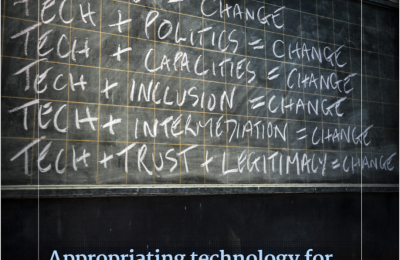 = CHANGE
TECH + POLITICS = CHANGE
TECH + CAPACITIES = CHANGE
TECH + INCLUSION = CHANGE
TECH + INTERMEDIATION = CHANGE
TECH + TRUST + LEGITIMACY = CHANGE
Appropriating technology for